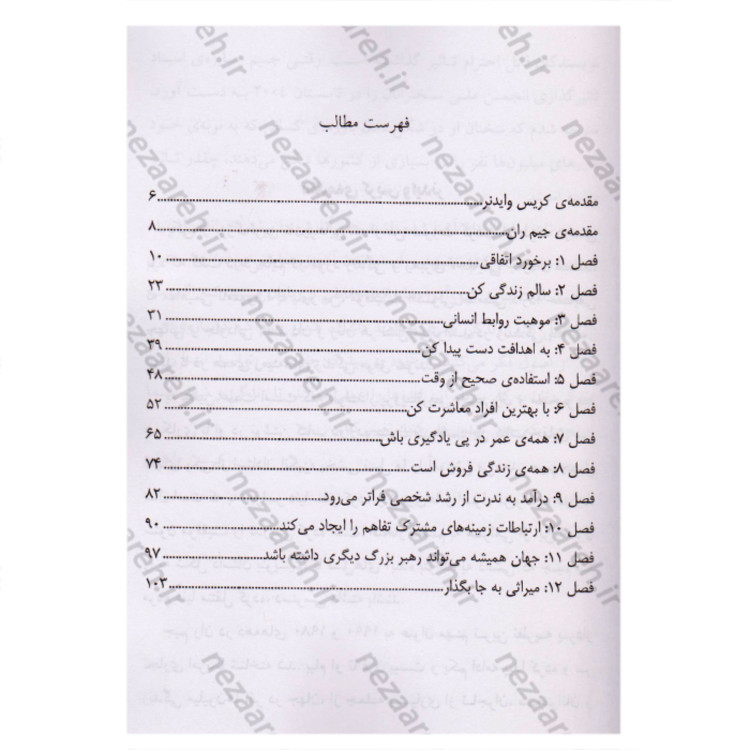 فهرست مطالب
مقدمه‌ی کریس وایدنر......۶
مقدمه‌ی جیم ران......۸
فصل ۱: برخورد اتفاقی......۱۰
فصل ۲: سالم زندگی کن......۲۳
فصل ۳: موهبت روابط انسانی......۳۱
فصل ۴: به اهدافت دست پیدا کن......۳۹
فصل ۵: استفاده‌ی صحیح از وقت......۴۸
فصل ۶: با بهترین افراد معاشرت کن......۵۲
فصل ۷: همه‌ی عمر در پی یادگیری باش......۶۵
فصل ۸: همه‌ی زندگی فروش است......۷۴
فصل ۹: درآمد به ندرت از رشد شخصی فراتر می‌رود......۸۲
فصل ۱۰: ارتباطات زمینه‌های مشترک تفاهم را ایجاد می‌کند......۹۰
فصل ۱۱: جهان همیشه می‌تواند رهبر بزرگ دیگری داشته باشد......۹۷
فصل ۱۲: میراثی به جا بگذار......۱۰۳
nezaareh.ir